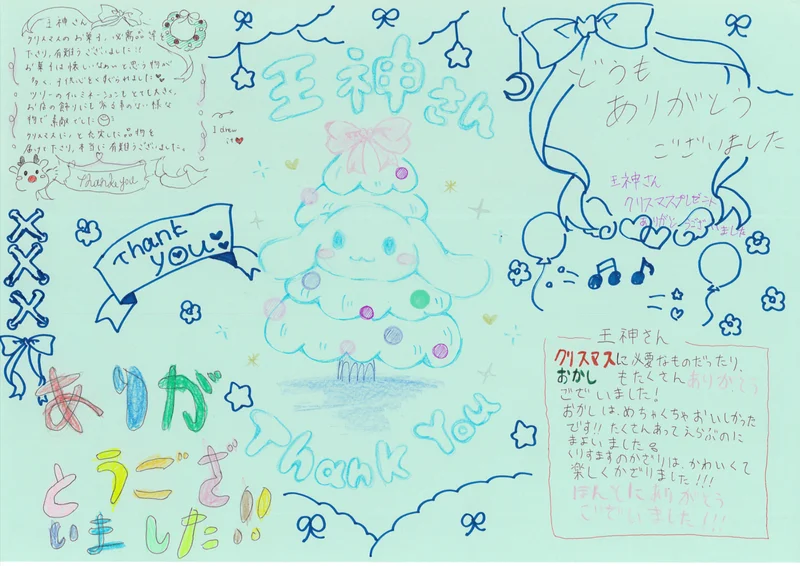 王神さん
クリスマスのお菓子、必需品等を
下さり、有難うございました!!
お菓子は懐しいなぁーと思う物が
多く、子供心をくすぐられました
ツリーのイルミネーションもとても大きく、
お店の飾りにも劣らない様な
物で素敵でした
クリスマスに、と充実した品物を
届けて下さり、本当に有難うございました。
Thank you
I drew
it
王神さん
どうも
ありがとう
ございました
王神さん
クリスマスプレゼント
ありがとうございました
Thank
you
ありが
とうござ
いました!!
Thank You
王神さん
クリスマスに必要なものだったり、
おかしもたくさんありがとう
ございました!
おかしは、めちゃくちゃおいしかった
です!!たくさんあってえらぶのに
まよいました。
くりすますのかざりは、かわいくて
楽しくかざりました!!!
ほんとにありがとう
ございました!!!